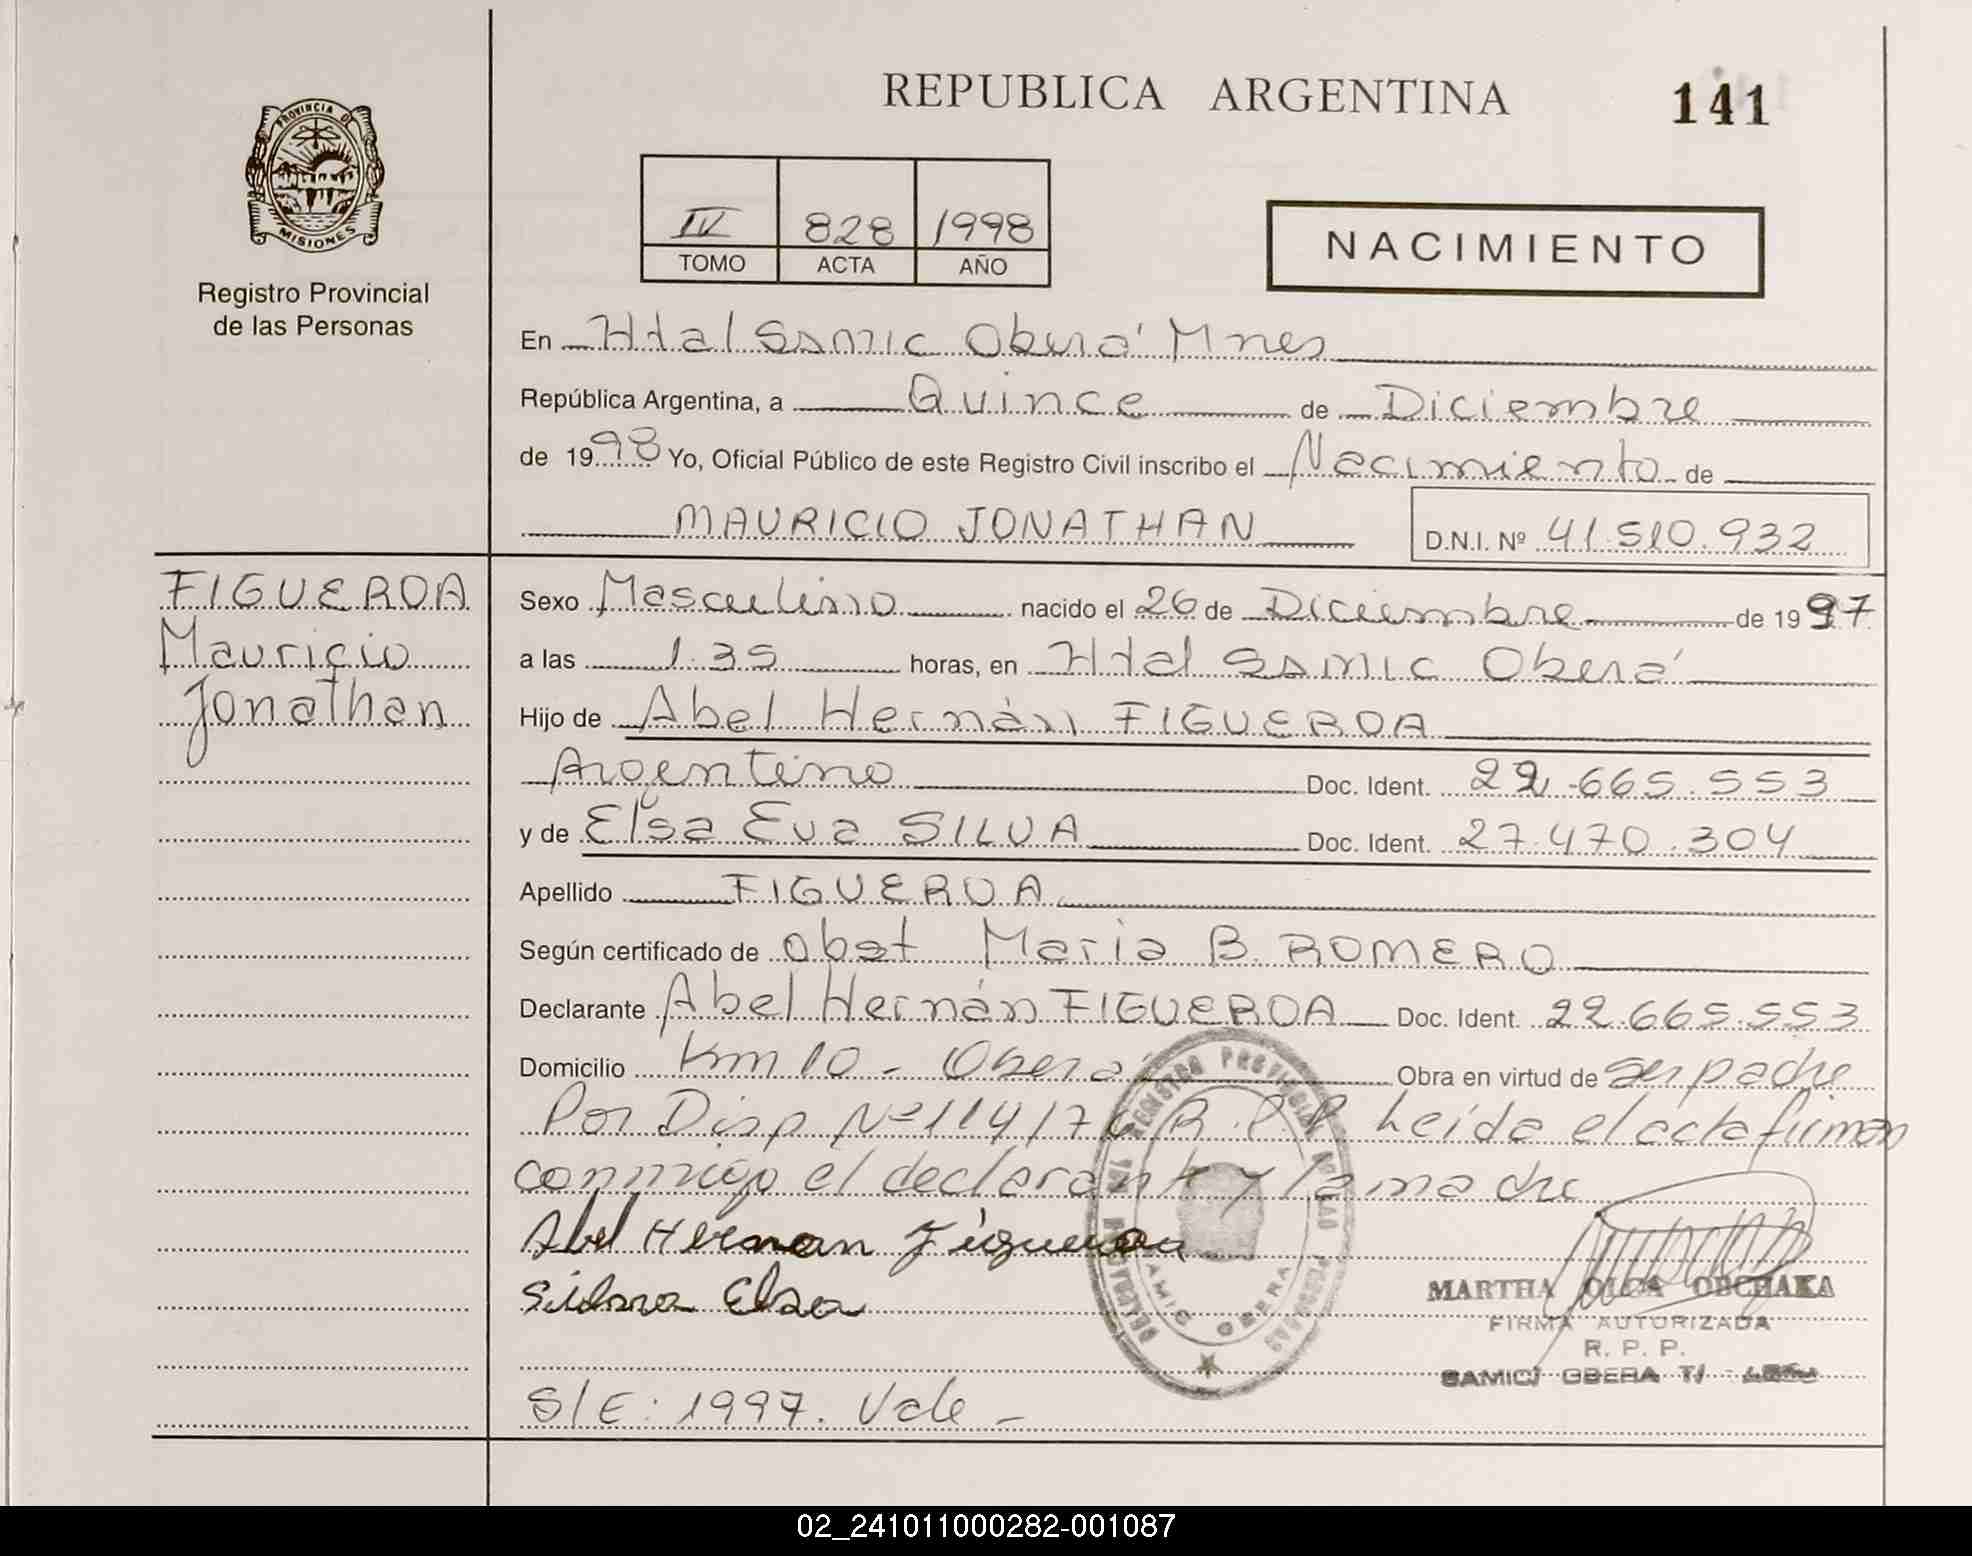 REPUBLICA ARGENTINA
141
PROVINCIA DE
MISIONES
Registro Provincial
de las Personas
IV 828 1998
TOMO ACTA AÑO
NACIMIENTO
En Htal Samic Oberá Mnes
República Argentina, a Quince de Diciembre
de 1998 Yo, Oficial Público de este Registro Civil inscribo el Nacimiento de
MAURICIO JONATHAN D.N.I. Nº 41.510.932
FIGUEROA
Mauricio
Jonathan
Sexo Masculino nacido el 26 de Diciembre de 1997
a las 1.35 horas, en Htal Samic Oberá
Hijo de Abel Hernán FIGUEROA
Argentino Doc. Ident. 22.665.553
y de Elsa Eva SILVA Doc. Ident. 27.470.304
Apellido FIGUEROA
Según certificado de Obst Maria B. ROMERO
Declarante Abel Hernán FIGUEROA Doc. Ident. 22.665.553
Domicilio Km 10 - Oberá Obra en virtud de ser padre
Por Disp Nº 114/76 R.P.P. Leída el acta firman
conmigo el declarante y la madre
Abel Hernan Figueroa
Silva Elsa
REGISTRO PROVINCIAL DE LAS PERSONAS
SAMIC OBERA
MARTHA OLGA OBCHAKA
FIRMA AUTORIZADA
R. P. P.
SAMIC OBERA
S/E: 1997. Vale -
02_241011000282-001087